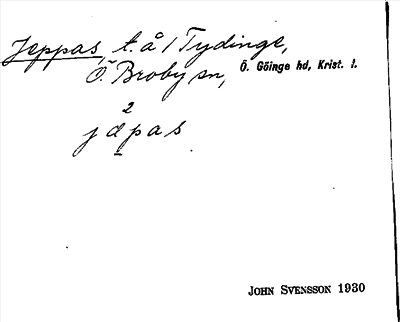 Jeppas t. å 1 Tydinge,
Ö. Broby sn, Ö. Göinge hd, Krist. l.
2
j d p a s
JOHN SVENSSON 1930